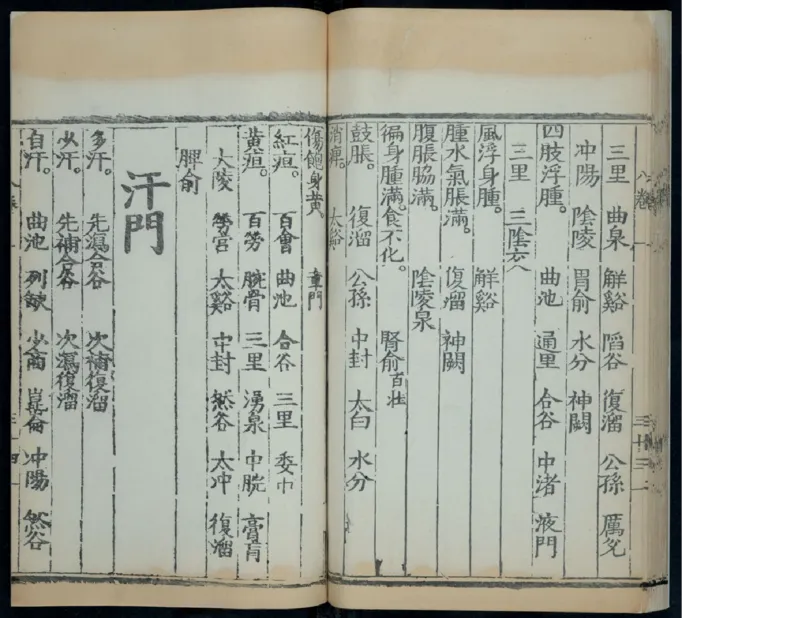 三里 曲泉 解谿 陷谷 復溜 公孫 厲兌
冲陽 陰陵 胃俞 水分 神闕
四肢浮腫。 曲池 通里 合谷 中渚 液門
三里 三陰交
風浮身腫。 解谿
腫水氣脹滿。 復溜 神闕
腹脹脇滿。 陰陵泉
徧身腫滿。食不化。 腎俞百壯
鼓脹。 復溜 公孫 中封 太白 水分
消癉。 太谿
傷飽身黃。 章門
紅疸。 百會 曲池 合谷 三里 委中
黃疸。 百勞 腕骨 三里 湧泉 中脘 膏肓
大陵 勞宮 太谿 中封 然谷 太冲 復溜
脾俞
汗門
多汗。 先瀉合谷 次補復溜
少汗。 先補合谷 次瀉復溜
自汗。 曲池 列缺 少商 崑崙 冲陽 然谷